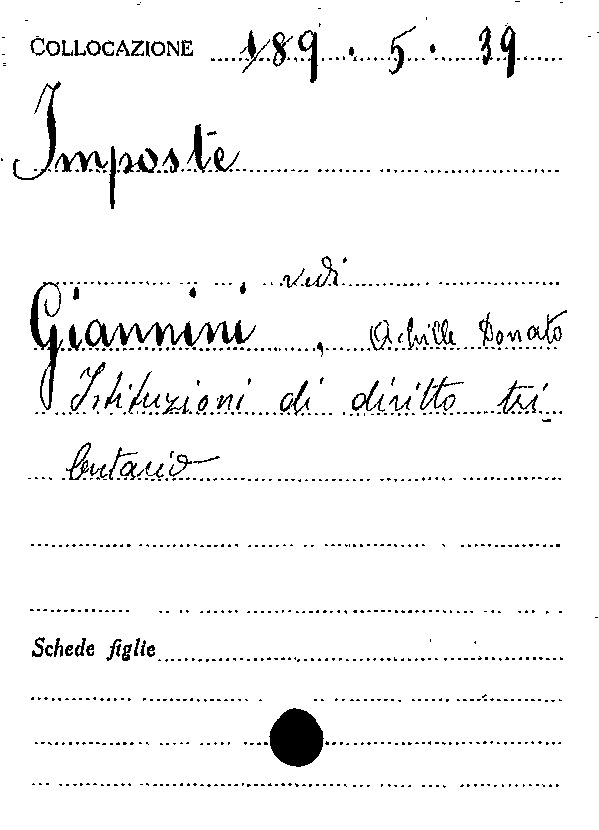 COLLOCAZIONE 189. 5. 39
Imposte
vedi
Giannini, Achille Donato
Istituzioni di diritto tri-
butario
Schede figlie